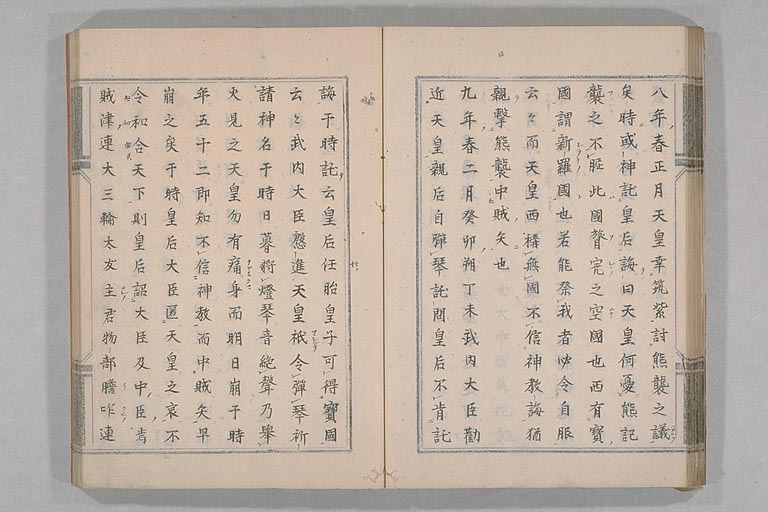 八年春正月天皇幸筑紫討熊襲之議
矣時或神託皇后誨曰天皇何憂熊記
襲之不脡此國膂宍之空國也西有寶
國謂新羅國也若能祭我者必令自服
云々而天皇西無國不信神教誨猶
親擊熊襲中賊矢也
九年春二月癸卯朔丁未武内大臣勸
近天皇親后自彈琴託聞皇后不肯託
誨于時託云皇后任胎皇子可得寶國
云々武内大臣進天皇祇令彈琴祈
請神名于時日暮將燈琴音絶聲乃舉
火見之天皇勿有痛身而明日崩于時
年五十二即知不信神教而中賊矢早
崩之矣于時皇后大臣匿天皇之哀不
令和合天下則皇后詔大臣及中臣烏
賊津連大三輪大友主君物部膽咋連